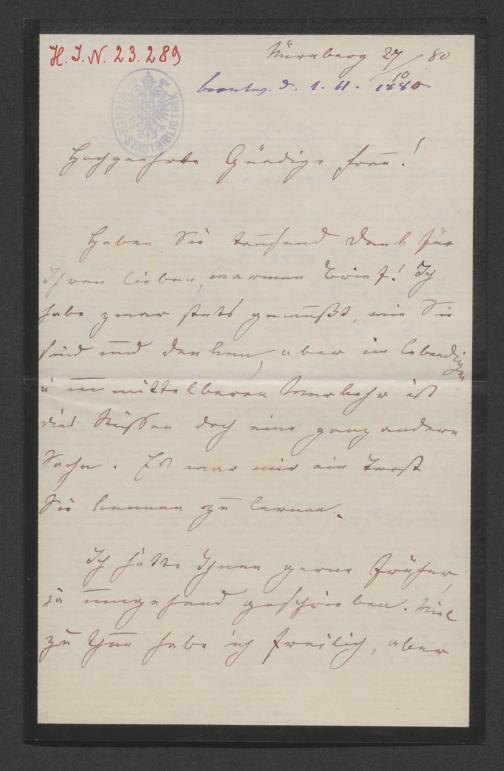 H. I. N. 23.289
Nürnberg 27/10 80
beantw. d. 1. 11. 1880
WIENER STADTBIBLIOTHEK
Hochgeehrte Gnädige Frau!
Haben Sie tausend Dank für
Ihren lieben, warmen Brief! Ich
habe zwar stets gewußt, wie Sie
sind und denken, aber im lebendigen
u unmittelbaren Verkehr ist
dies Wissen doch eine ganz andere
Sache. Es war mir ein Trost
Sie kennen zu lernen.
Ich hätte Ihnen gerne früher,
ja umgehend geschrieben. Viel
zu thun habe ich freilich, aber